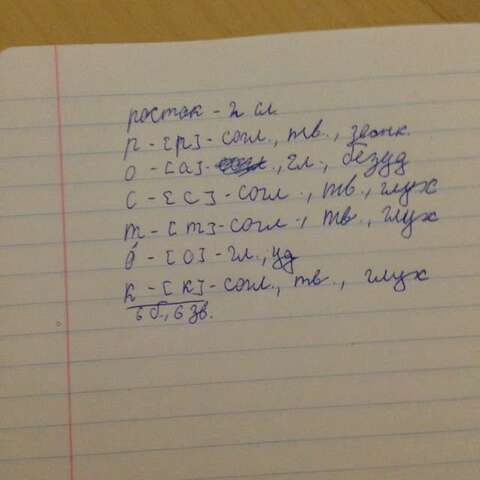 росток - 2 сл.
р - [р] - согл., тв., звонк.
о - [а] - гл., безуд
с - [с] - согл., тв., глух
т - [т] - согл., тв., глух
о́ - [о] - гл., уд
к - [к] - согл., тв., глух
6 б., 6 зв.